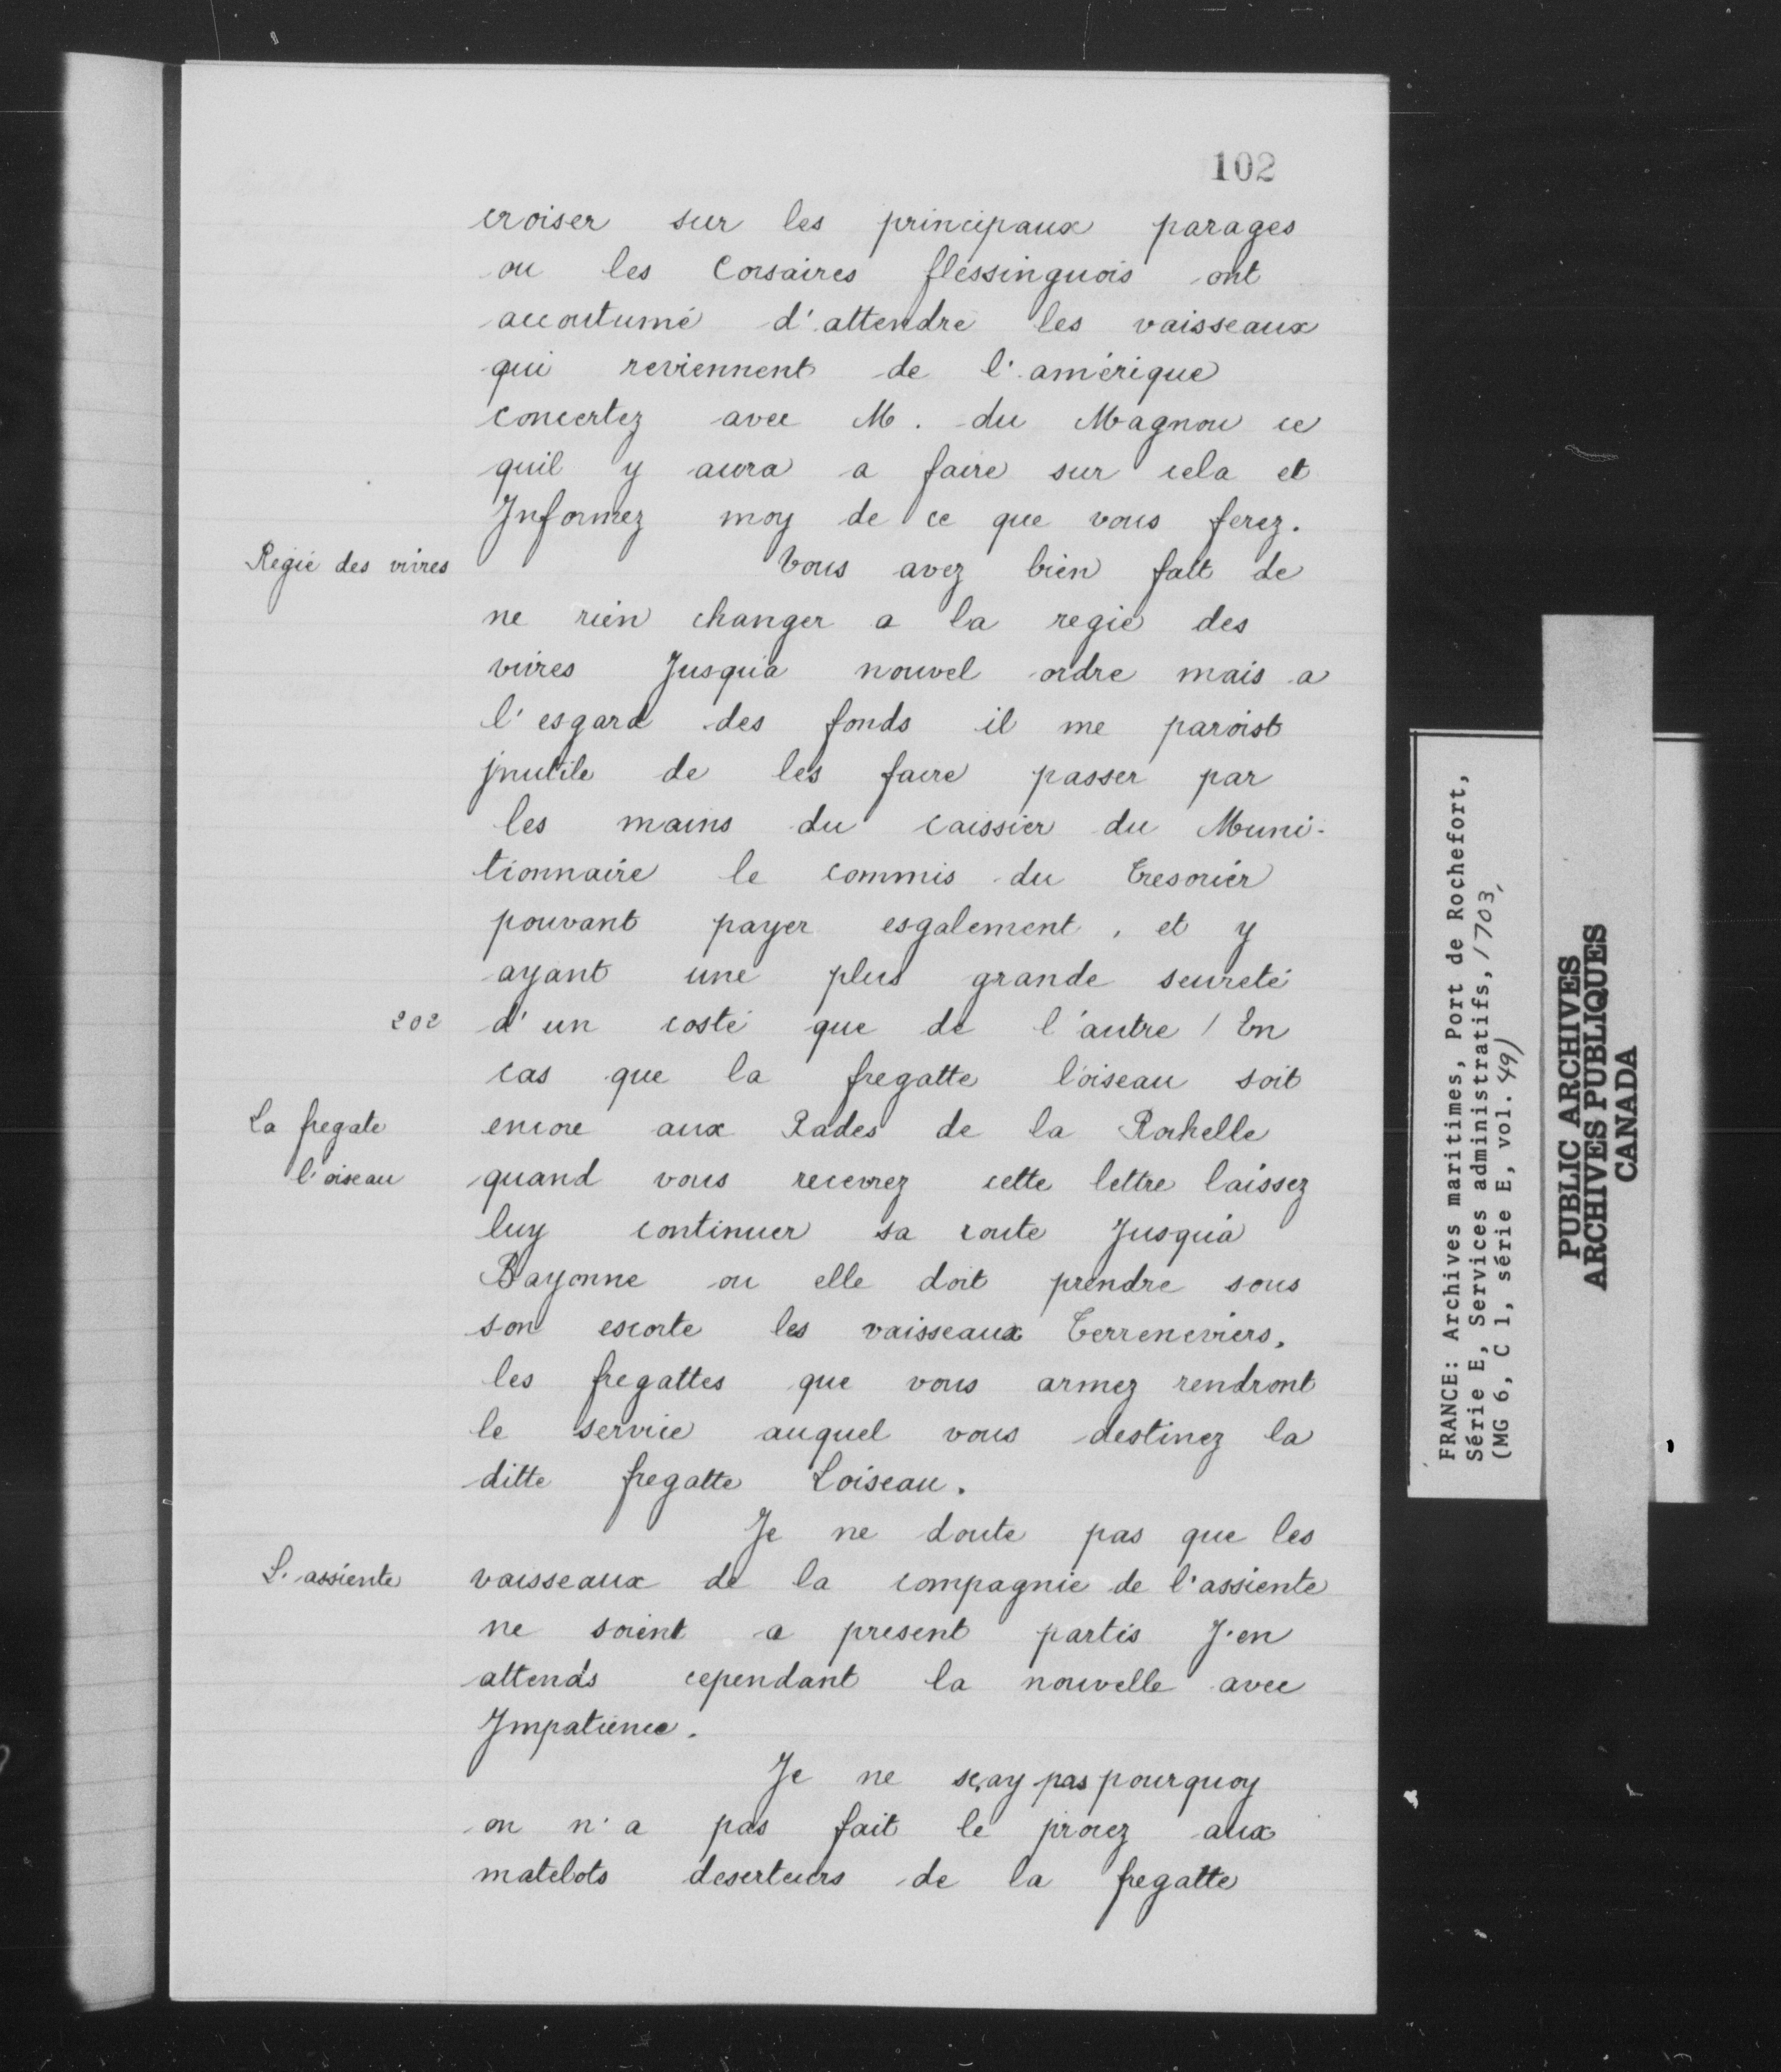 102
croiser sur les principaux parages
ou les Corsaires flessinguois ont
accoutumé d'attendre les vaisseaux
qui reviennent de l'amérique
concertez avec M. du Magnou ce
quil y aura a faire sur cela et
Informez moy de ce que vous ferez.
Regie des vivres
Vous avez bien fait de
ne rien changer a la regie des
vivres Jusqu'a nouvel ordre mais a
l'esgard des fonds il me paroist
jnutile de les faire passer par
les mains du caissier du Muni-
tionnaire le commis du Tresorier
pouvant payer esgalement, et y
ayant une plus grande seureté
202
d'un costé que de l'autre / En
cas que la fregatte l'oiseau soit
La fregate
encore aux Rades de la Rochelle
l'oiseau
quand vous recevrez cette lettre laissez
luy continuer sa route Jusqu'a
Bayonne ou elle doit prendre sous
son escorte les vaisseaux Terreneviers.
les fregattes que vous armez rendront
le service auquel vous destinez la
ditte fregatte Loiseau.
Je ne doute pas que les
L'assiente
vaisseaux de la compagnie de l'assiente
ne soient a present partis J'en
attends cependant la nouvelle avec
Impatience.
Je ne sçay pas pourquoy
on n'a pas fait le procez aux
matelots deserteurs de la fregatte
FRANCE: Archives maritimes, Port de Rochefort,
Série E, Services administratifs, 1703,
(MG 6, C 1, série E, vol. 49)
PUBLIC ARCHIVES
ARCHIVES PUBLIQUES
CANADA